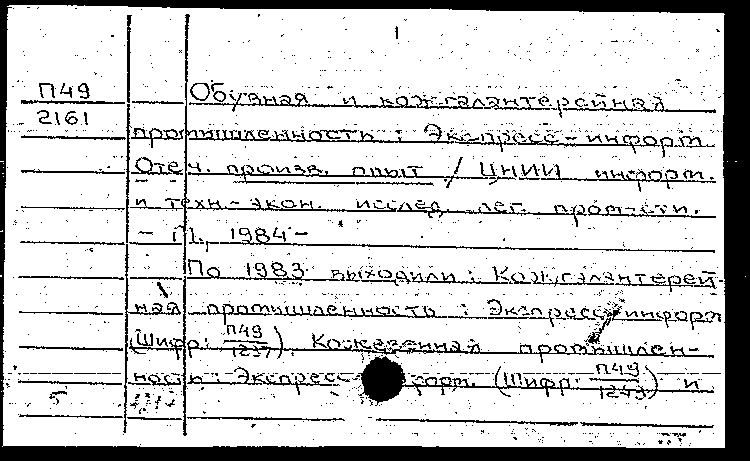 1
П49 Обувная и кож.-галантерейная
2161 промышленность : Экспресс-информ.
Отеч. произв. опыт / ЦНИИ информ.
и техн.-экон. исслед. лег. пром-сти.
- М., 1984 -
По 1983 выходили : Кож.галантерей-
ная промышленность : Экспресс-информ
(Шифр: П49/1237). Кожевенная промышлен-
ность : Экспресс- форм. (Шифр: П49/1243) и
5